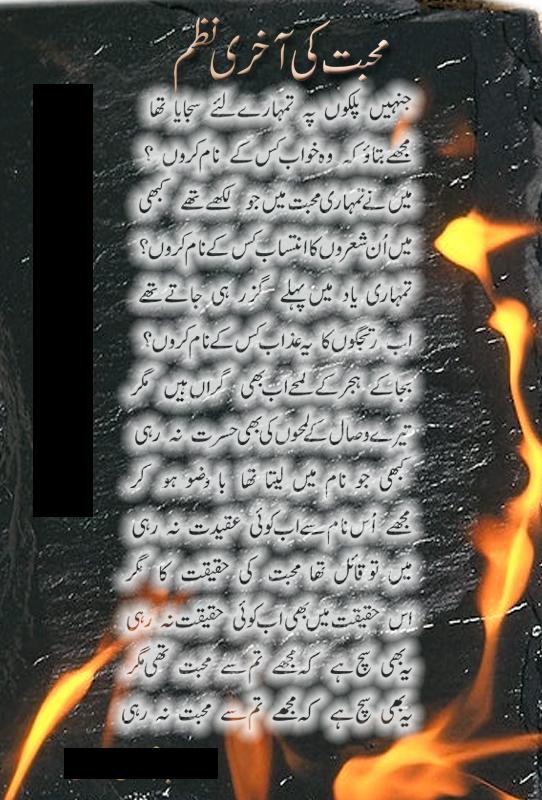 محبت کی آخری نظم
جنہیں پلکوں پہ تمہارے لئے سجایا تھا
مجھے بتاؤ کہ وہ خواب کس کے نام کروں ؟
میں نے تمہاری محبت میں جو لکھے تھے کبھی
میں اُن شعروں کا انتساب کس کے نام کروں؟
تمہاری یاد میں پہلے گزر ہی جاتے تھے
اب رتجگوں کا یہ عذاب کس کے نام کروں؟
بجا کے ہجر کے لمحے اب بھی گراں ہیں مگر
تیرے وصال کے لمحوں کی بھی حسرت نہ رہی
کبھی جو نام میں لیتا تھا با وضو ہو کر
مجھے اُس نام سے اب کوئی عقیدت نہ رہی
میں تو قائل تھا محبت کی حقیقت کا مگر
اس حقیقت میں بھی اب کوئی حقیقت نہ رہی
یہ بھی سچ ہے کہ مجھے تم سے محبت تھی مگر
یہ بھی سچ ہے کہ مجھے تم سے محبت نہ رہی